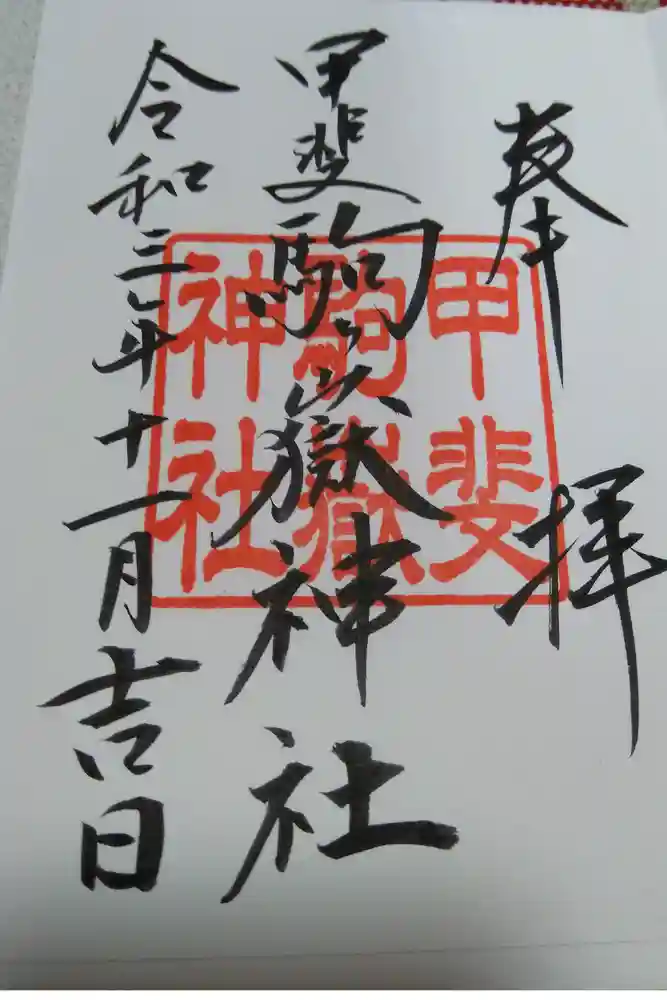 奉拝
甲斐駒嶽神社
令和三年十一月吉日
甲斐
駒嶽
神社